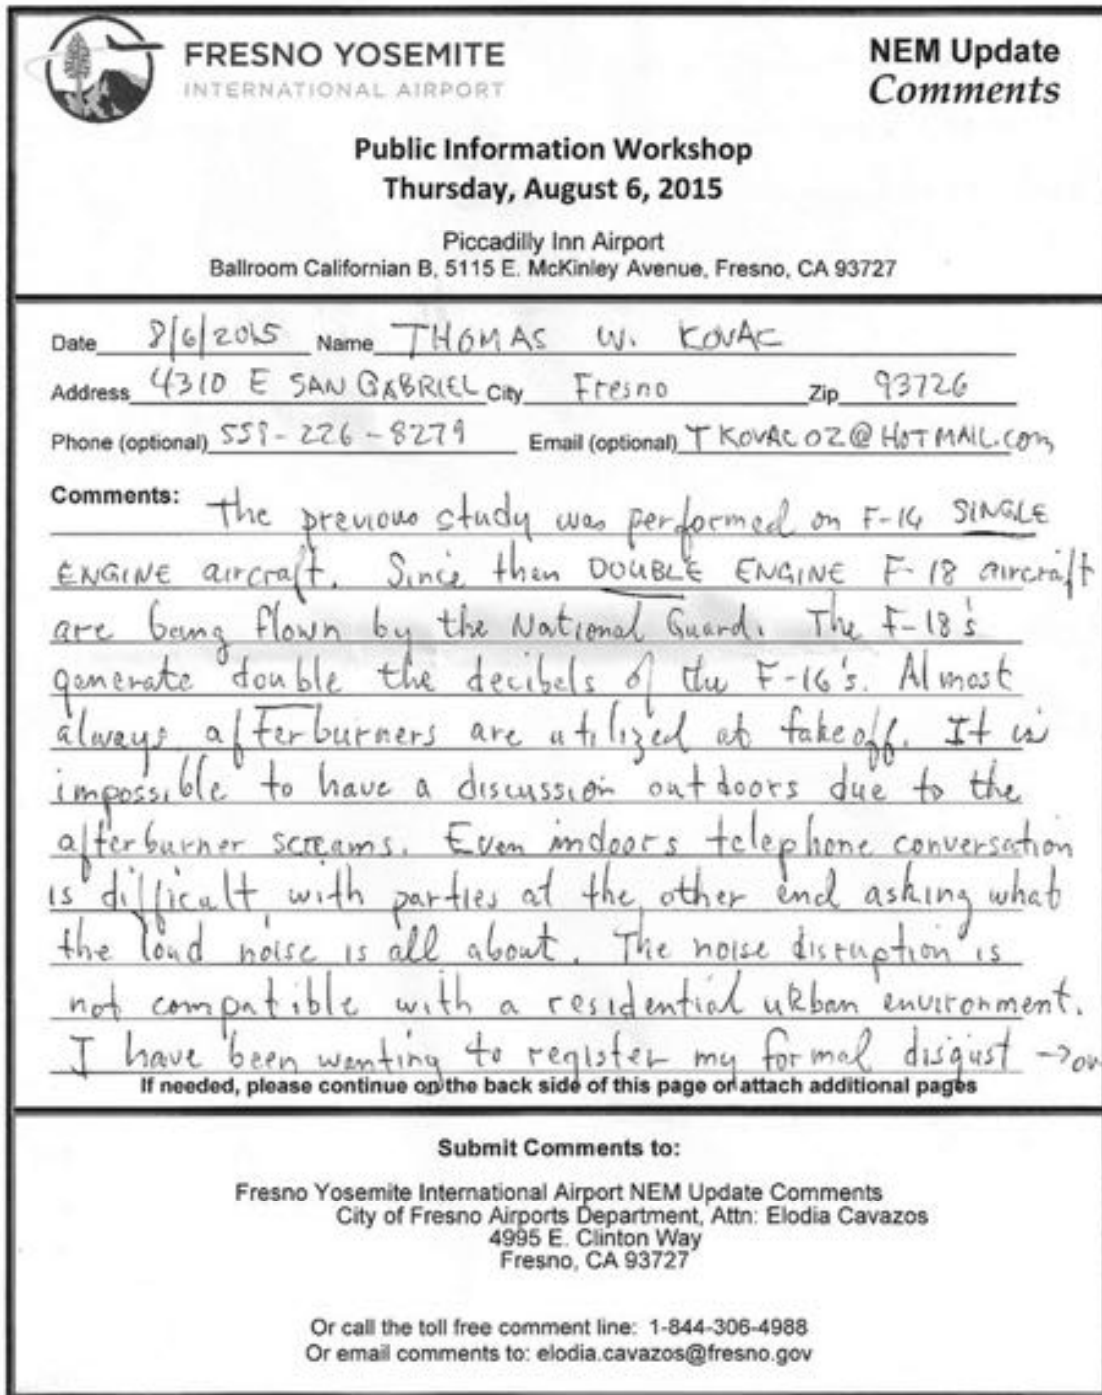 FRESNO YOSEMITE
INTERNATIONAL AIRPORT
NEM Update
Comments
Public Information Workshop
Thursday, August 6, 2015
Piccadilly Inn Airport
Ballroom Californian B, 5115 E. McKinley Avenue, Fresno, CA 93727
Date 8/6/2015 Name THOMAS W. KOVAC
Address 4310 E SAN GABRIEL City Fresno Zip 93726
Phone (optional) 559-226-8279 Email (optional) TKOVACOZ@HOTMAIL.com
Comments: The previous study was performed on F-16 SINGLE
ENGINE aircraft. Since then DOUBLE ENGINE F-18 aircraft
are being flown by the National Guard. The F-18's
generate double the decibels of the F-16's. Almost
always afterburners are utilized at takeoff. It is
impossible to have a discussion outdoors due to the
afterburner screams. Even indoors telephone conversation
is difficult with parties at the other end asking what
the loud noise is all about. The noise disruption is
not compatible with a residential urban environment.
I have been wanting to register my formal disgust → over
If needed, please continue on the back side of this page or attach additional pages
Submit Comments to:
Fresno Yosemite International Airport NEM Update Comments
City of Fresno Airports Department, Attn: Elodia Cavazos
4995 E. Clinton Way
Fresno, CA 93727
Or call the toll free comment line: 1-844-306-4988
Or email comments to: elodia.cavazos@fresno.gov